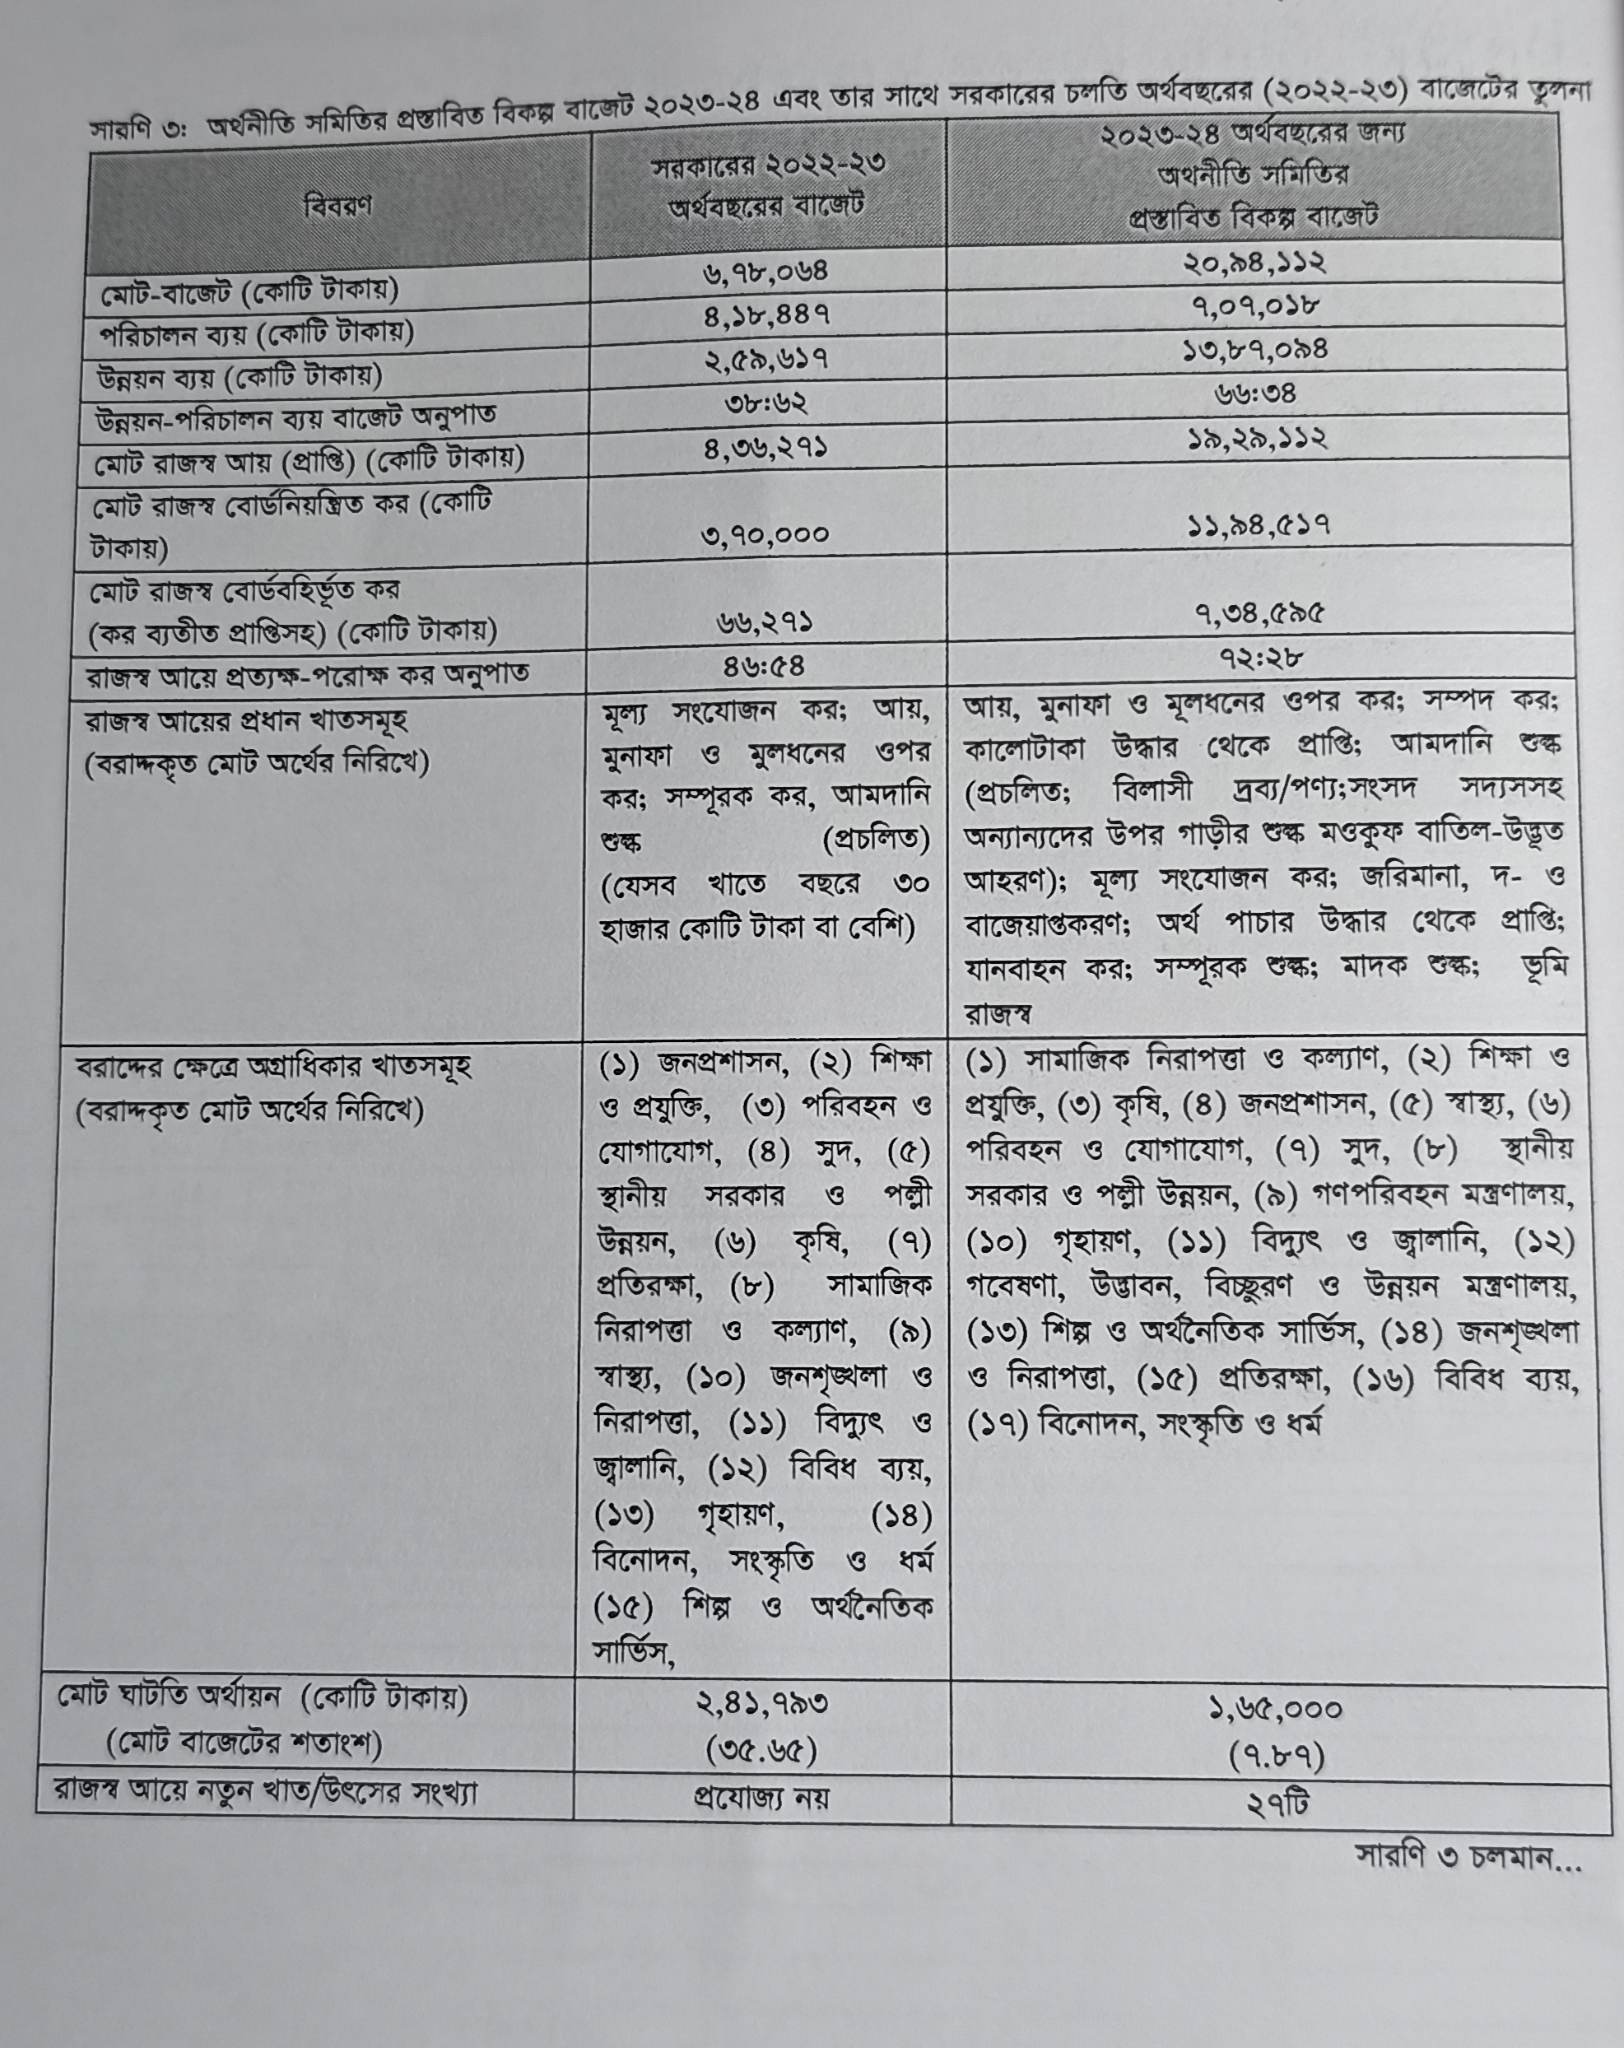 সারণি ৩: অর্থনীতি সমিতির প্রস্তাবিত বিকল্প বাজেট ২০২৩-২৪ এবং তার সাথে সরকারের চলতি অর্থবছরের (২০২২-২৩) বাজেটের তুলনা
বিবরণ
সরকারের ২০২২-২৩
অর্থবছরের বাজেট
২০২৩-২৪ অর্থবছরের জন্য
অথনীতি সমিতির
প্রস্তাবিত বিকল্প বাজেট
মোট-বাজেট (কোটি টাকায়)
৬,৭৮,০৬৪
২০,৯৪,১১২
পরিচালন ব্যয় (কোটি টাকায়)
৪,১৮,৪৪৭
৭,০৭,০১৮
উন্নয়ন ব্যয় (কোটি টাকায়)
২,৫৯,৬১৭
১৩,৮৭,০৯৪
উন্নয়ন-পরিচালন ব্যয় বাজেট অনুপাত
৩৮:৬২
৬৬:৩৪
মোট রাজস্ব আয় (প্রাপ্তি) (কোটি টাকায়)
৪,৩৬,২৭১
১৯,২৯,১১২
মোট রাজস্ব বোর্ডনিয়ন্ত্রিত কর (কোটি
টাকায়)
৩,৭০,০০০
১১,৯৪,৫১৭
মোট রাজস্ব বোর্ডবহির্ভূত কর
(কর ব্যতীত প্রাপ্তিসহ) (কোটি টাকায়)
৬৬,২৭১
৭,৩৪,৫৯৫
রাজস্ব আয়ে প্রত্যক্ষ-পরোক্ষ কর অনুপাত
৪৬:৫৪
৭২:২৮
রাজস্ব আয়ের প্রধান খাতসমূহ
(বরাদ্দকৃত মোট অর্থের নিরিখে)
মূল্য সংযোজন কর; আয়,
মুনাফা ও মুলধনের ওপর
কর; সম্পূরক কর, আমদানি
শুল্ক (প্রচলিত)
(যেসব খাতে বছরে ৩০
হাজার কোটি টাকা বা বেশি)
আয়, মুনাফা ও মূলধনের ওপর কর; সম্পদ কর;
কালোটাকা উদ্ধার থেকে প্রাপ্তি; আমদানি শুল্ক
(প্রচলিত; বিলাসী দ্রব্য/পণ্য;সংসদ সদ্যসসহ
অন্যান্যদের উপর গাড়ীর শুল্ক মওকুফ বাতিল-উদ্ভূত
আহরণ); মূল্য সংযোজন কর; জরিমানা, দ- ও
বাজেয়াপ্তকরণ; অর্থ পাচার উদ্ধার থেকে প্রাপ্তি;
যানবাহন কর; সম্পূরক শুল্ক; মাদক শুল্ক; ভূমি
রাজস্ব
বরাদ্দের ক্ষেত্রে অগ্রাধিকার খাতসমূহ
(বরাদ্দকৃত মোট অর্থের নিরিখে)
(১) জনপ্রশাসন, (২) শিক্ষা
ও প্রযুক্তি, (৩) পরিবহন ও
যোগাযোগ, (৪) সুদ, (৫)
স্থানীয় সরকার ও পল্লী
উন্নয়ন, (৬) কৃষি, (৭)
প্রতিরক্ষা, (৮) সামাজিক
নিরাপত্তা ও কল্যাণ, (৯)
স্বাস্থ্য, (১০) জনশৃঙ্খলা ও
নিরাপত্তা, (১১) বিদ্যুৎ ও
জ্বালানি, (১২) বিবিধ ব্যয়,
(১৩) গৃহায়ণ, (১৪)
বিনোদন, সংস্কৃতি ও ধর্ম
(১৫) শিল্প ও অর্থনৈতিক
সার্ভিস,
(১) সামাজিক নিরাপত্তা ও কল্যাণ, (২) শিক্ষা ও
প্রযুক্তি, (৩) কৃষি, (৪) জনপ্রশাসন, (৫) স্বাস্থ্য, (৬)
পরিবহন ও যোগাযোগ, (৭) সুদ, (৮) স্থানীয়
সরকার ও পল্লী উন্নয়ন, (৯) গণপরিবহন মন্ত্রণালয়,
(১০) গৃহায়ণ, (১১) বিদ্যুৎ ও জ্বালানি, (১২)
গবেষণা, উদ্ভাবন, বিচ্ছুরণ ও উন্নয়ন মন্ত্রণালয়,
(১৩) শিল্প ও অর্থনৈতিক সার্ভিস, (১৪) জনশৃঙ্খলা
ও নিরাপত্তা, (১৫) প্রতিরক্ষা, (১৬) বিবিধ ব্যয়,
(১৭) বিনোদন, সংস্কৃতি ও ধর্ম
মোট ঘাটতি অর্থায়ন (কোটি টাকায়)
(মোট বাজেটের শতাংশ)
২,৪১,৭৯৩
(৩৫.৬৫)
১,৬৫,০০০
(৭.৮৭)
রাজস্ব আয়ে নতুন খাত/উৎসের সংখ্যা
প্রযোজ্য নয়
২৭টি
সারণি ৩ চলমান...